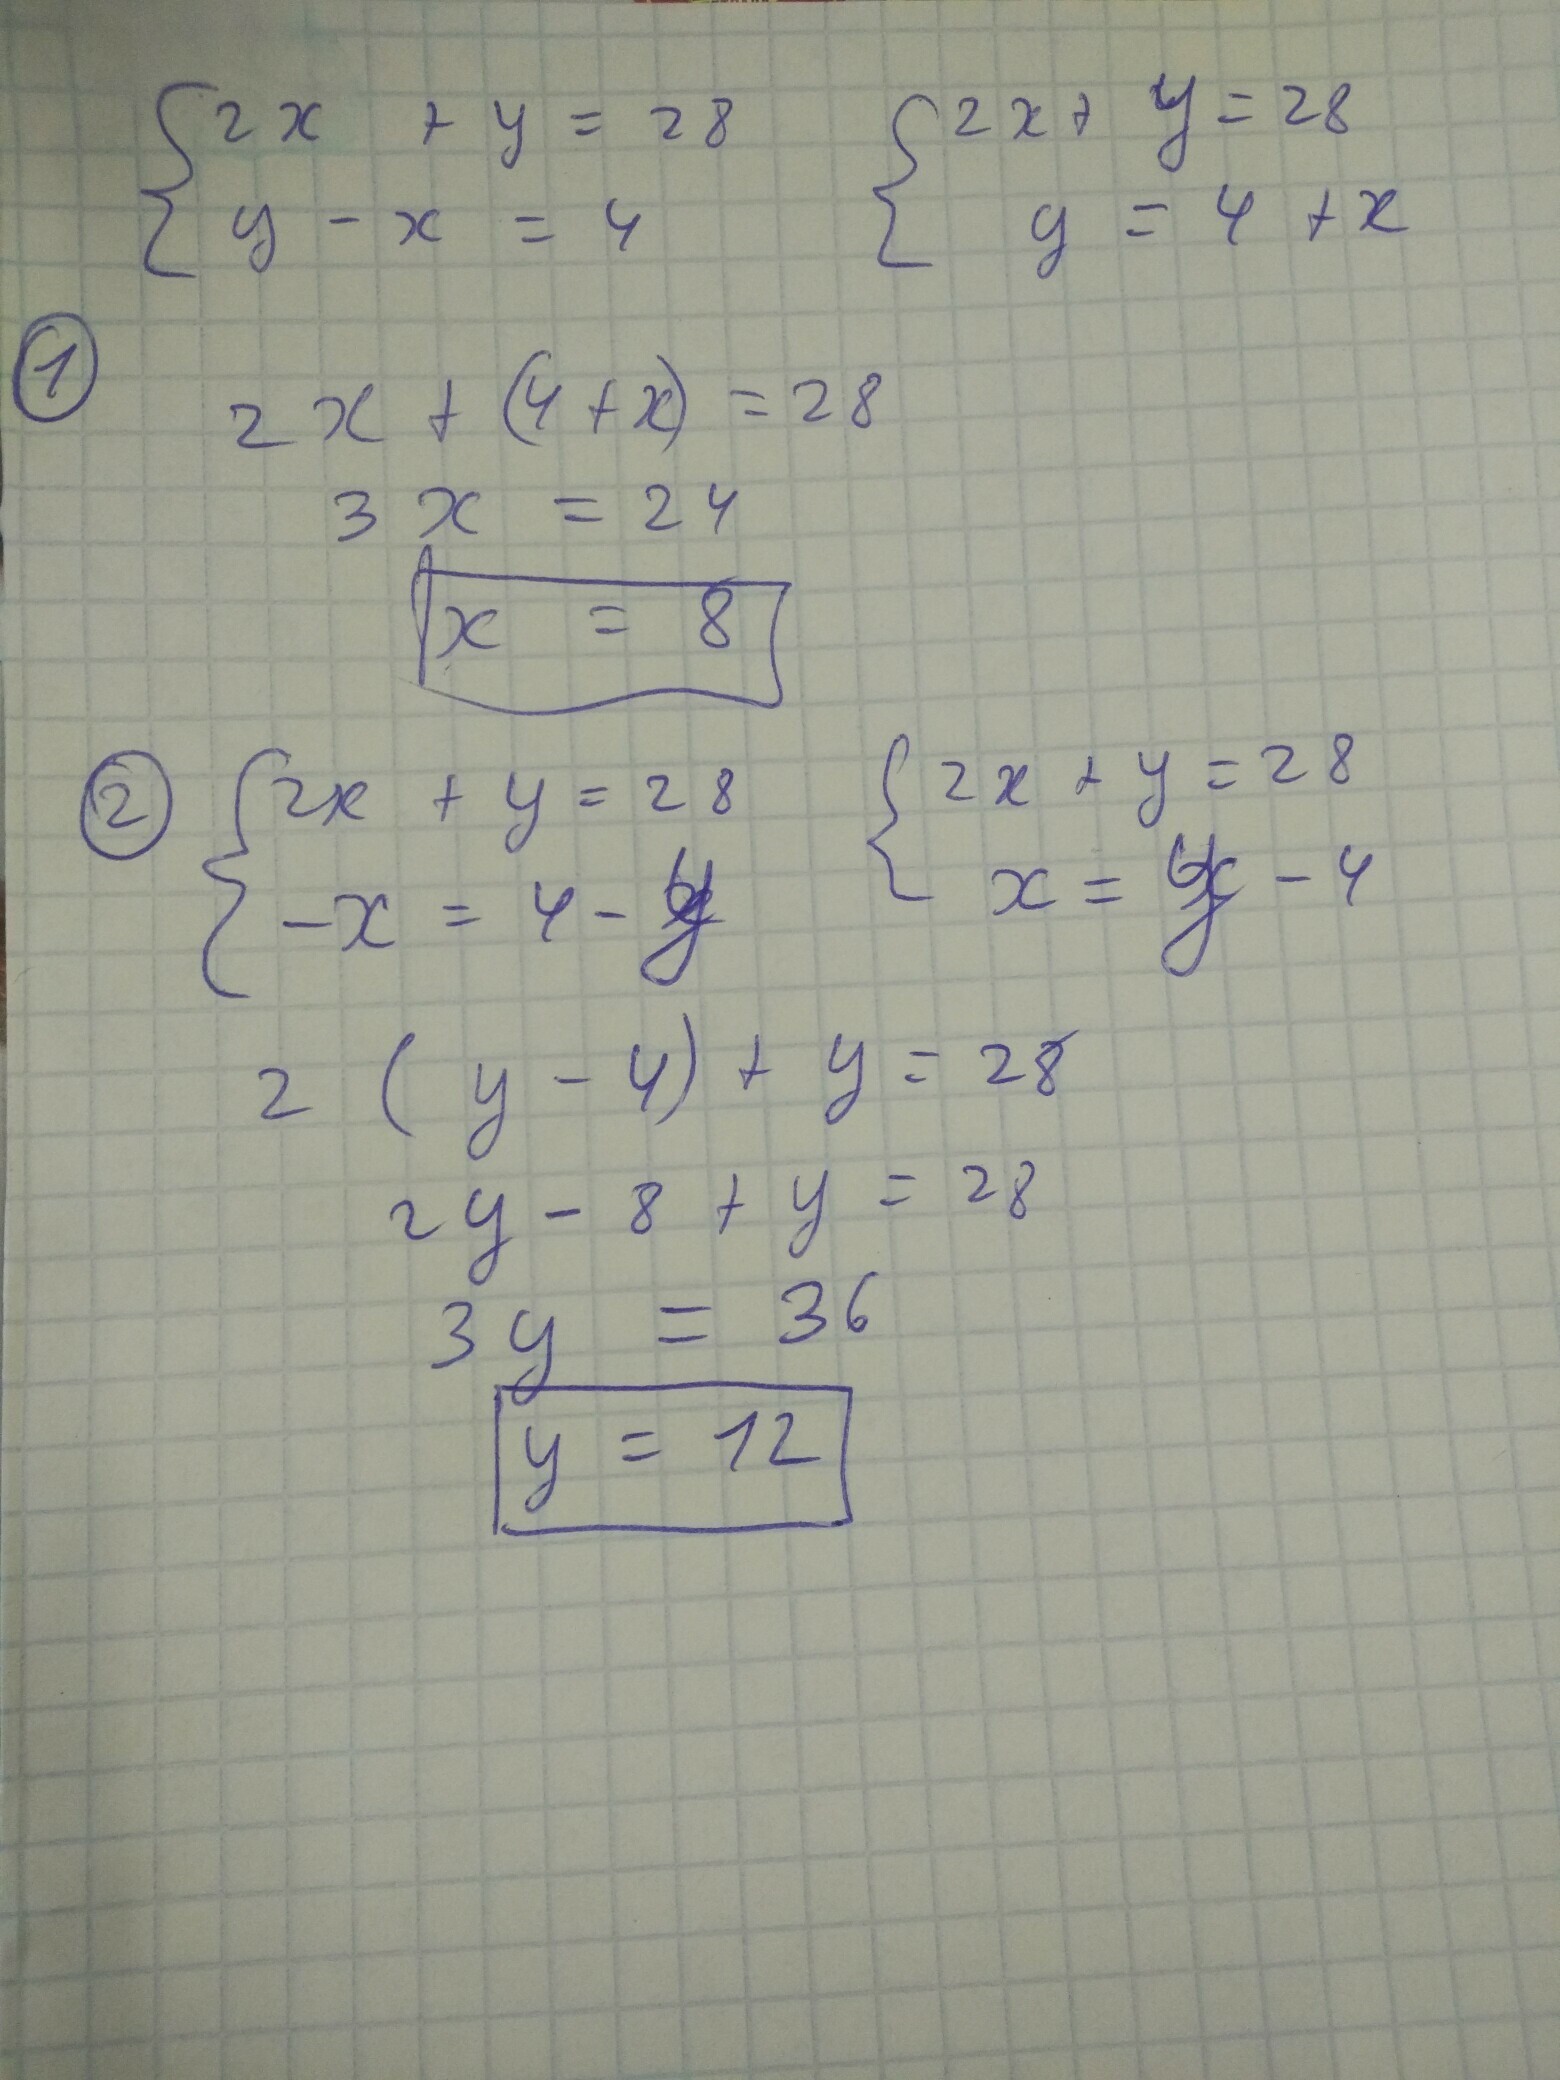 {2x + y = 28 {2x + y = 28
y - x = 4 y = 4 + x
1 2x + (4 + x) = 28
3x = 24
x = 8
2 {2x + y = 28 {2x + y = 28
-x = 4 - y x = y - 4
2 (y - 4) + y = 28
2y - 8 + y = 28
3y = 36
y = 12